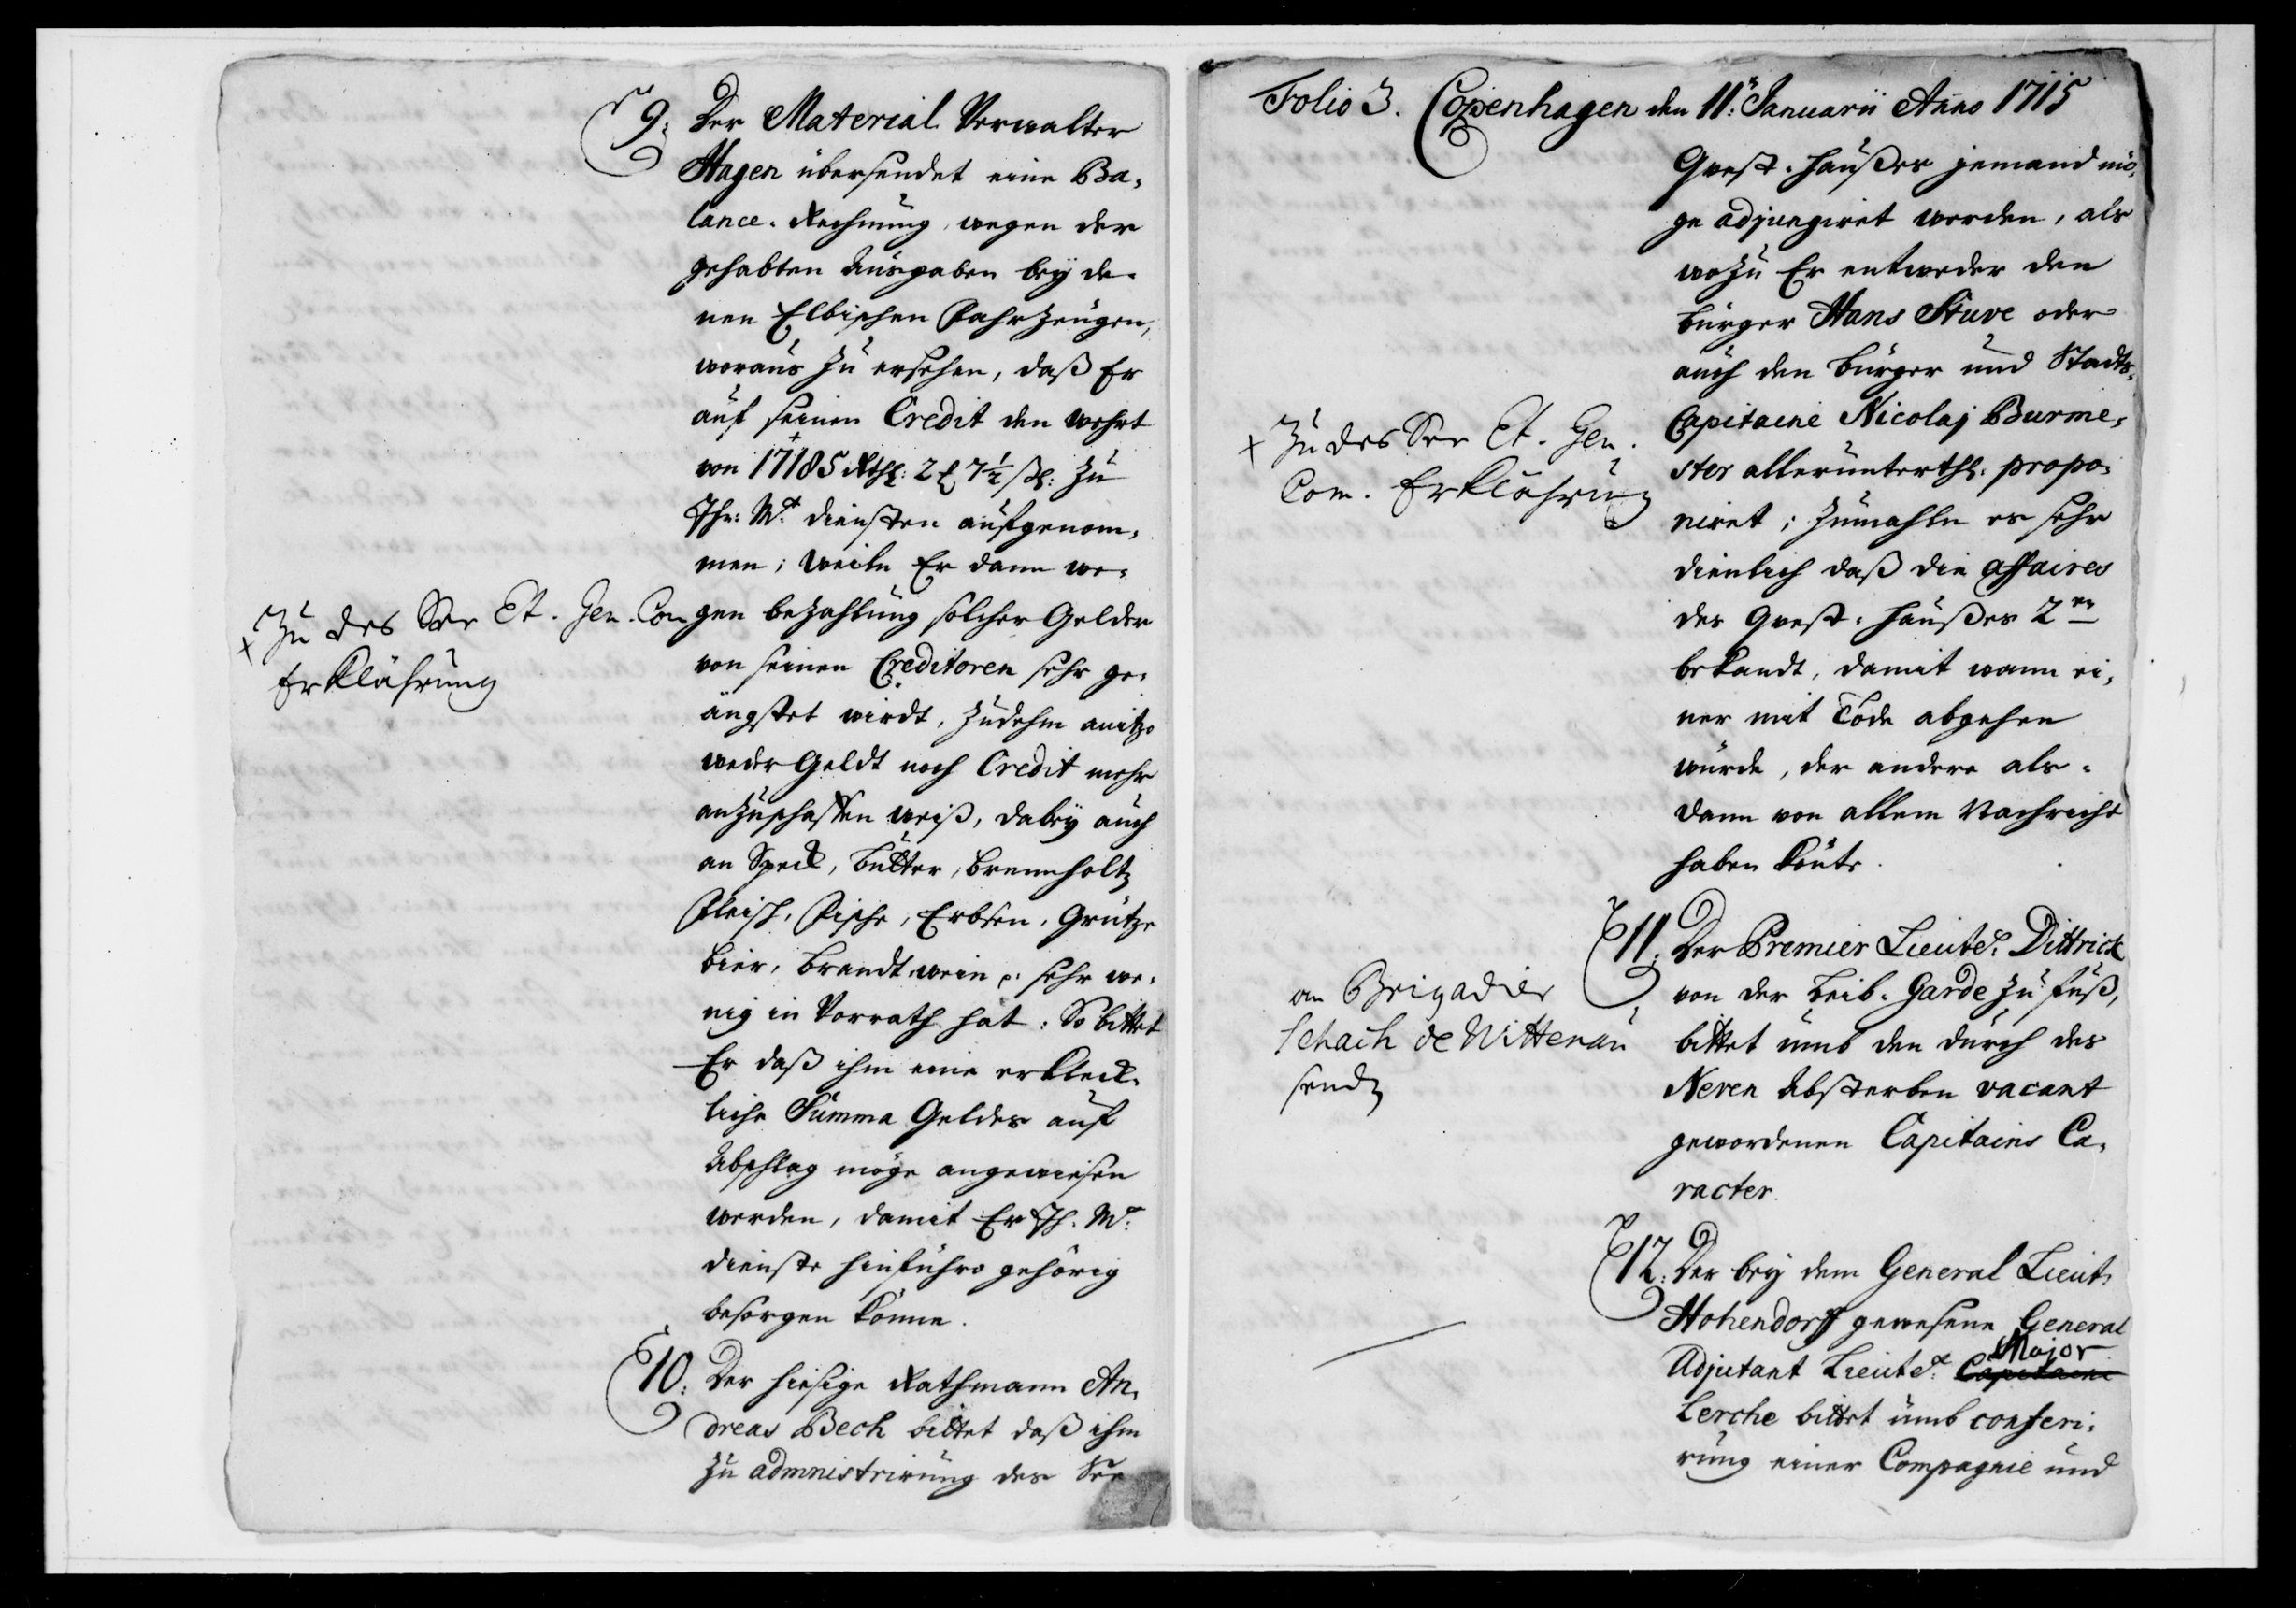 9. Der Material Verwalter
Hagen übersendet eine Ba-
lance-Rechnung, wegen der
gehabten Ausgaben bey de-
nen Elbischen Fahrzeugen,
woraus zu ersehen, daß Er
auf seinen Credit den wehrt
von 17185 Rthl: 2 7½ ßl: zu
Ihr: Mt. diensten aufgenom-
men; Weiln Er dann we-
gen bezahlung solcher Gelder
von seinen Creditoren sehr ge-
ängstet wirdt, Zudehm anitzo
weder Geldt noch Credit mehr
anzuschaffen weiß, dabey auch
an Speck, Butter, brennholtz
Fleisch, Fische, Erbsen, Grütze
bier, brandtwein p. sehr we-
nig in Vorrath hat: So bittet
Er daß ihm eine erkleck-
liche Summa Geldes auf
Abschlag möge angewiesen
werden, damit Er Ih. Mt.
dienste hinführo gehörig
besorgen könne.
x Zu des See Et. Gen. Com
Erklährung
10: Der hiesige Rathmann An-
dreas Bech bittet daß ihm
zu admnistrirung des See
Folio 3. Copenhagen den 11: Januarii Anno 1715
Qvest-haußes jemand mö-
ge adjungiret werden, als
wozu Er entweder den
bürger Hans Stuve oder
auch den bürger und Stadts-
Capitaine Nicolaj Burme-
ster allerunterthl. propo-
niret; Zumahln es sehr
dienlich daß die affaires
des Qvest-haußes 2en
bekandt, damit wann ei-
ner mit Tode abgehen
würde, der andere als-
dann von allem Nachricht
haben könte.
x Zu des See Et. Gen.
Com. Erklährung
11. Der Premier Lieutet. Dittrick
von der Leib-Garde zu fuß,
bittet umb den durch des
Neven Absterben vacant
gewordenen Capitains Ca-
racter.
an Brigadier
Schach de Wittenau
send
12. Der bey dem General Lieut.
Hohendorff gewesene General
Adjutant Lieutet. Capitaine Major
Lerche bittet umb conferi-
rung einer Compagnie und